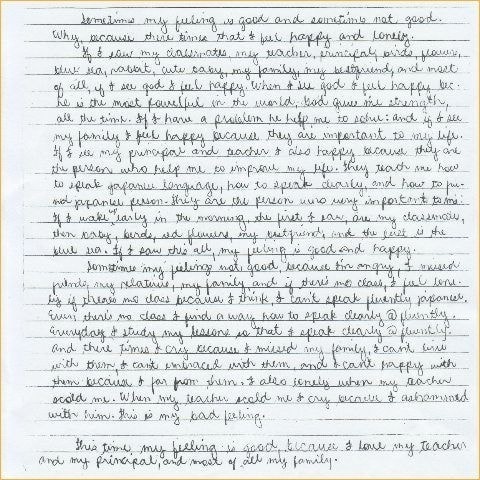 Sometimes my feeling is good and sometimes not, good.
Why, because there times that I feel happy and lonely.
If I saw my classmates, my teacher, principal, birds, flowers,
blue sea, rabbit, cute baby, my family, my bestfriend, and most
of all, if I see god I feel happy. When I see god I feel happy bec.
he is the most powerful in the world, God give me strength,
all the time. If I have a problem he help me to solve: and if I see
my family I feel happy because they are important to my life.
If I see my principal and teacher I also happy because they are
the person who help me to improve my life. They teach me how
to speak japanese language, how to speak clearly, and how to
japanese person. They are the person who very important to me.
If I wake up early in the morning, the first I saw, are my classmate,
then baby, birds, flowers, my bestfriend, and the last is the
blue sea. If I saw this all, my feeling is good and happy.
Sometimes my feeling not good, because I'm angry, I missed
friends, my relative, my family, and if there's no class, I feel lone-
ly if there's no class because I think I can't speak fluently japanese.
Even there's no class I find a way how to speak clearly @ fluently.
Everyday I study my lessons so that I speak clearly @ fluently.
And there times I cry because I missed my family, I can't live
with them, I can't embraced with them, and I can't happy with
them because I far from them. I also lonely when my teacher
scold me. When my teacher scold me I cry because I ashammed
with him. This is my bad feeling.
This time my feeling is good, because I love my teacher
and my principal, and most of all my family.